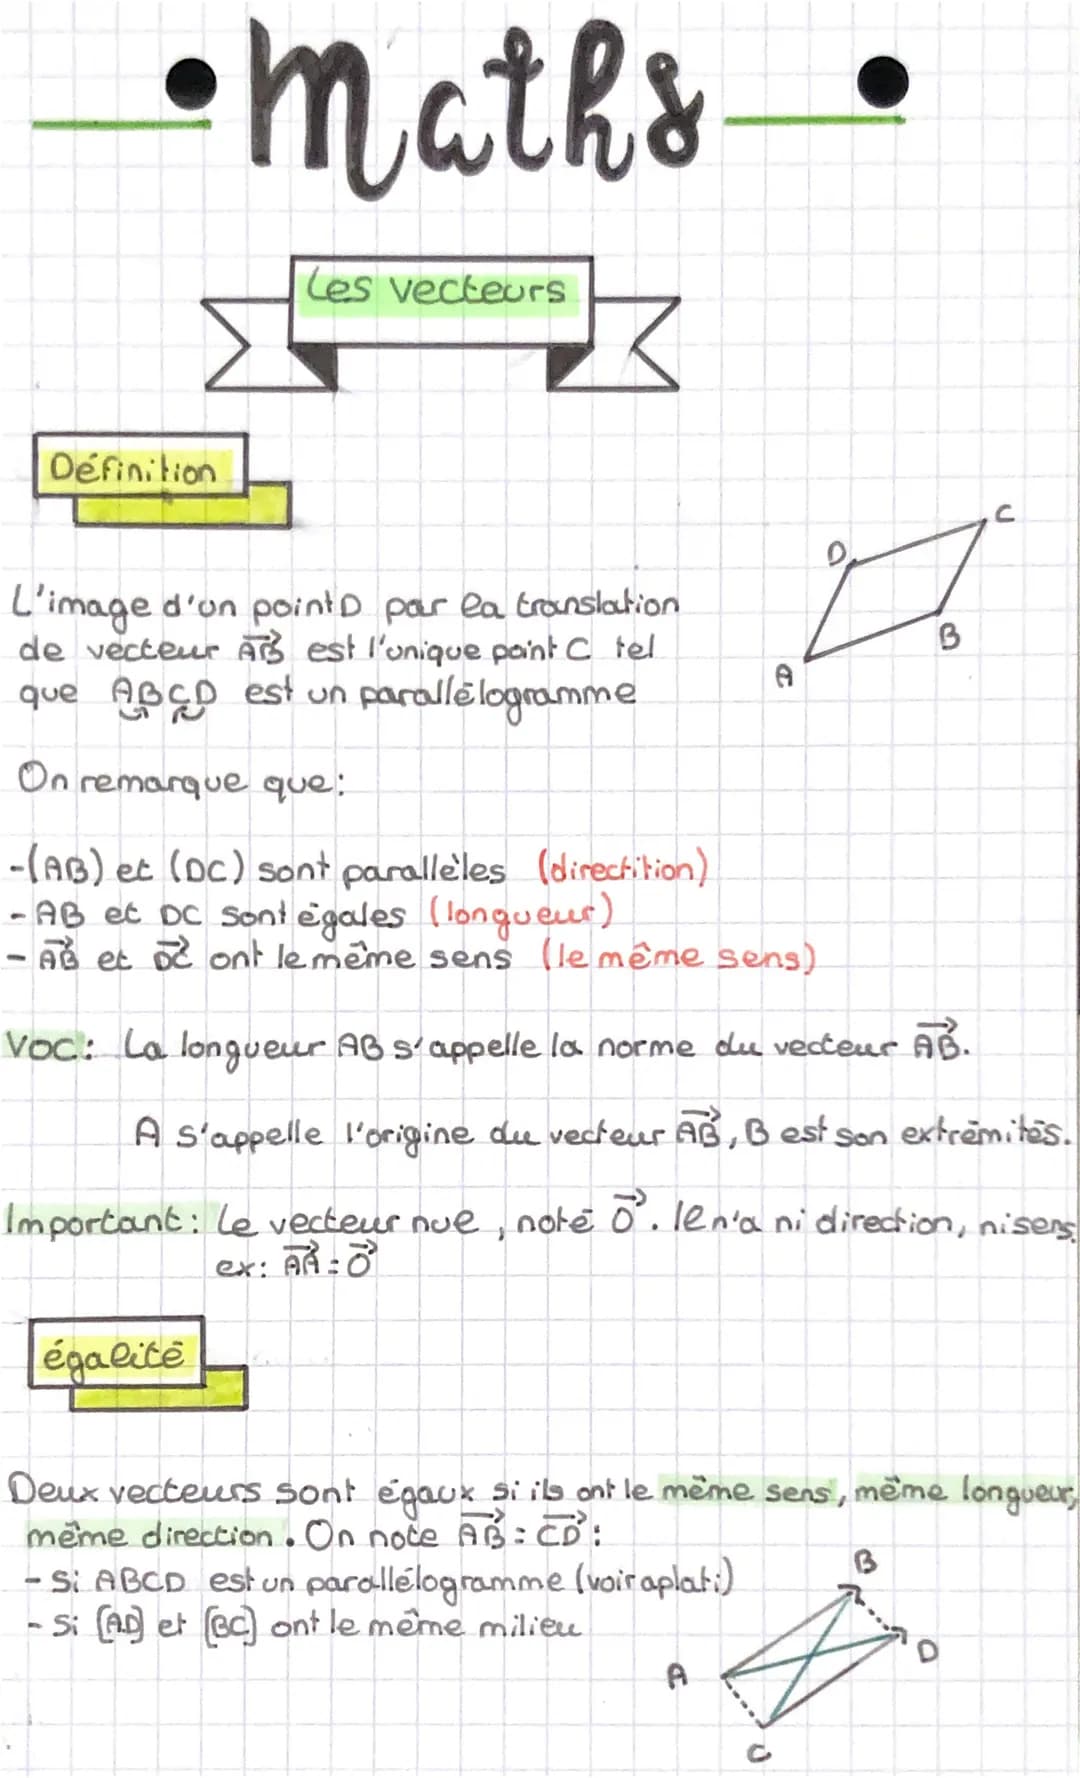 Maths
Les vecteurs
Définition
L'image d'un point D par la translation
de vecteur AB est l'unique point C tel
que ABCD est un parallélogramme
D
C
B
A
On remarque que:
-(AB) et (DC) sont parallèles (directition)
- AB et DC sont égales (longueur)
- AB et DC ont le même sens (le même sens)
Voc: La longueur AB s'appelle la norme du vecteur AB.
A s'appelle l'origine du vecteur AB, B est son extrémités.
Important: Le vecteur nue, noté O. Il n'a ni direction, ni sens.
ex: AA = O
égalité
Deux vecteurs sont égaux si ils ont le même sens, même longueur,
même direction. On note AB = CD:
- Si ABCD est un parallélogramme (voir aplati)
- Si [AD] et [BC] ont le même milieu
B
D
A
C